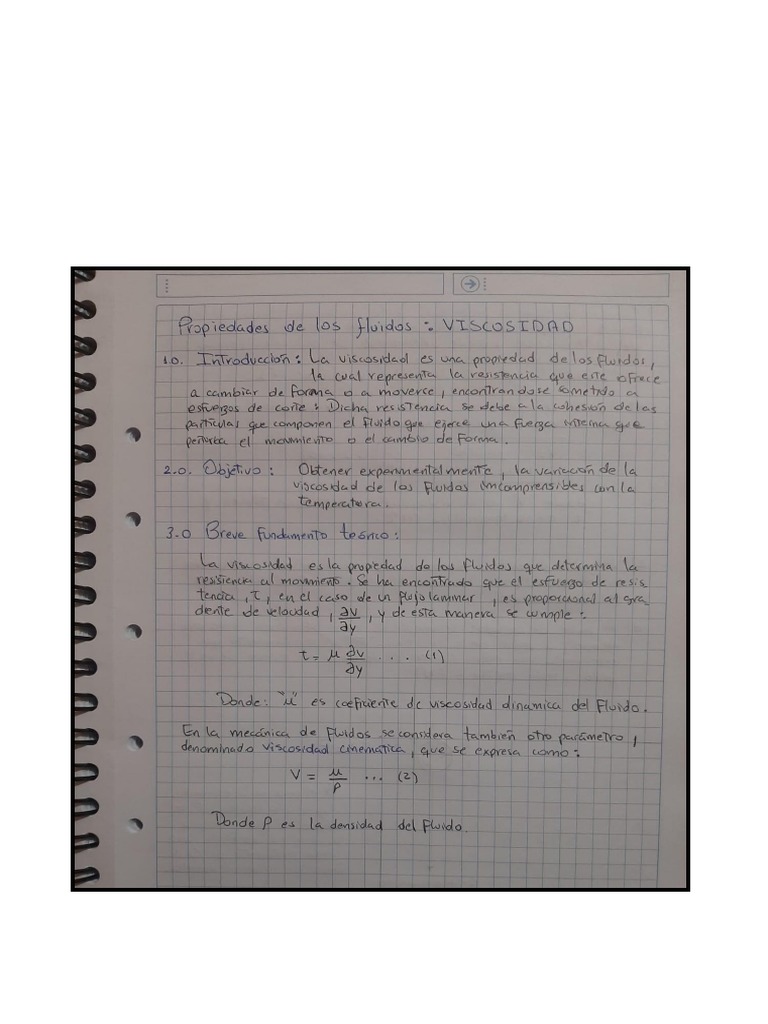 Propiedades de los fluidos : VISCOSIDAD
1.0. Introducción : La viscosidad es una propiedad de los fluidos,
la cual representa la resistencia que este ofrece
a cambiar de forma o a moverse, encontrandose sometido a
esfuerzos de corte : Dicha resistencia se debe a la cohesión de las
particulas que componen el fluido que ejerce una fuerza interna que
perturba el movimiento o el cambio de forma.
2.0. Objetivo : Obtener experimentalmente, la variación de la
viscosidad de los fluidos incomprensibles con la
temperatura.
3.0 Breve fundamento teórico :
La viscosidad es la propiedad de los fluidos que determina la
resistencia al movimiento. Se ha encontrado que el esfuerzo de resis
tencia, τ, en el caso de un flujo laminar, es proporcional al gra
diente de velocidad, ∂v/∂y, y de esta manera se cumple :
τ = μ ∂v/∂y ... (1)
Donde : "μ" es coeficiente de viscosidad dinamica del fluido.
En la mecánica de fluidos se considera también otro parámetro,
denominado viscosidad cinematica, que se expresa como :
V = μ/ρ ... (2)
Donde ρ es la densidad del fluido.